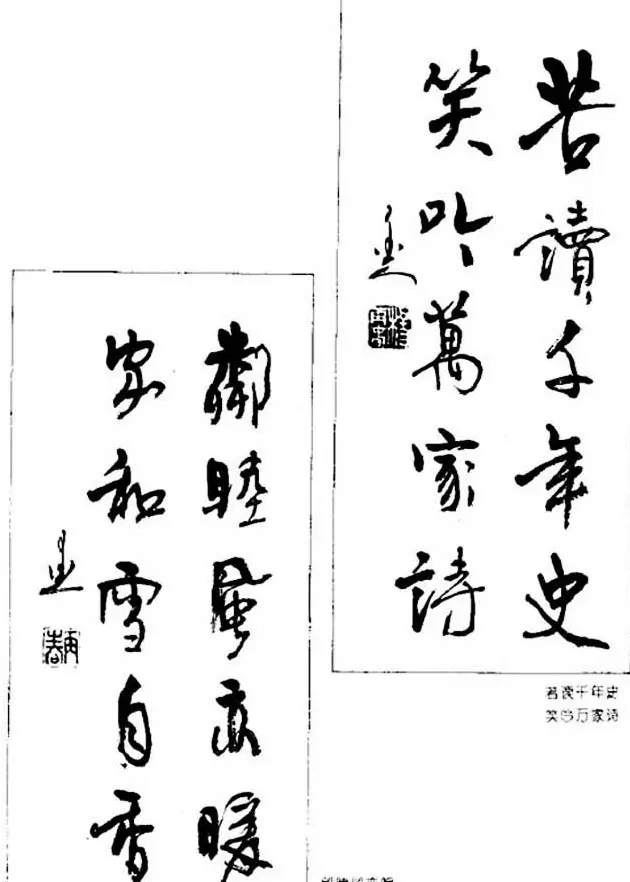 苦讀千年史
笑吟萬家詩
苦读千年史
笑吟万家诗
鄰睦風亦暖
家和雪自香